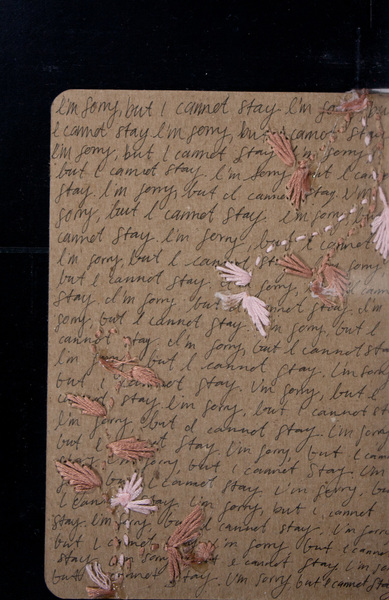 I'm sorry, but I cannot stay I'm so but
I cannot stay I'm sorry, but I cannot stay
I'm sorry, but I cannot stay I'm sorry
but I cannot stay. I'm sorry but I can
stay I'm sorry, but I cannot stay. I'm
sorry, but I cannot stay. I'm sorry, but
cannot stay. I'm sorry, but I cannot
I'm sorry, but I cannot st sorry
but I cannot stay. I'm sorry, I cannot
stay. I'm sorry, but cannot stay. I'm
sorry but I cannot stay. I'm sorry, but I
cannot stay. I'm sorry, but I cannot stay
I'm but I cannot stay. I'm sorry
but I cannot stay. I'm sorry, but I
cannot stay I'm sorry, but I cannot st
I'm sorry but I cannot stay. I'm sorry
but I stay. I'm sorry, but I cann
stay. I'm sorry, but I cannot stay. I'm
sorry, but I cannot stay. I'm sorry, bu
I can stay. I'm sorry, but I cannot
stay. I'm sorry, bu I cannot stay. I'm sorry
but I I'm sorry, but I cannot
stay I cannot stay I'm so
but cannot stay. I'm sorry but I cannot sta